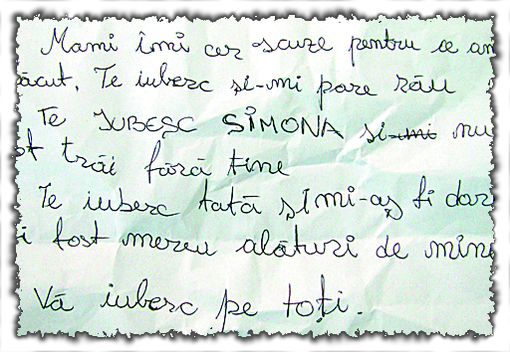 Mami îmi cer scuze pentru ce am
făcut. Te iubesc si-mi pare rău
Te IUBESC SIMONA si-mi nu
pot trăi fără tine
Te iubesc tată și mi-aș fi dor
i fost mereu alături de mine
Vă iubesc pe toți.